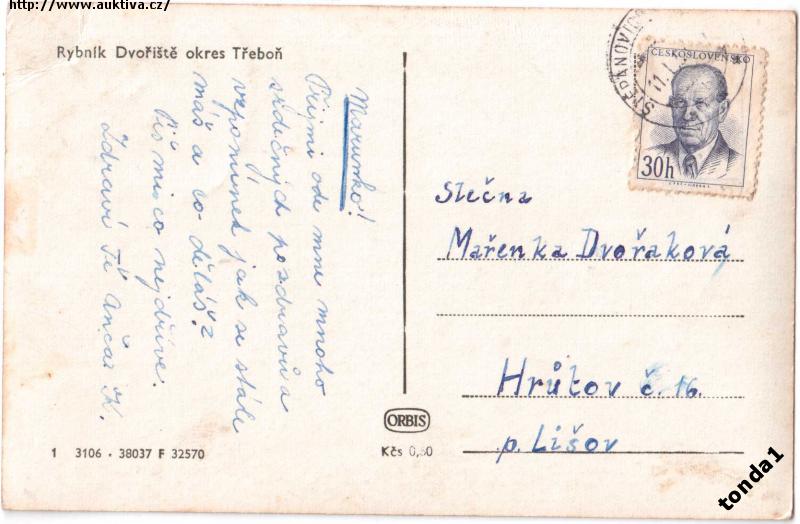 http://www.auktiva.cz/
Rybník Dvořiště okres Třeboň
Marunko!
Přijmi ode mne mnoho
srdečných pozdravů a
vzpomínek jak se stále
máš a co děláš?
Piš mi co nejdříve.
Zdraví Tě Ančas K.
ČESKOSLOVENSKO
30h
Slečna
Mařenka Dvořaková
Hrůtov č. 16.
p. Lišov
ORBIS
1 3106 - 38037 F 32570
Kčs 0,60
tonda1